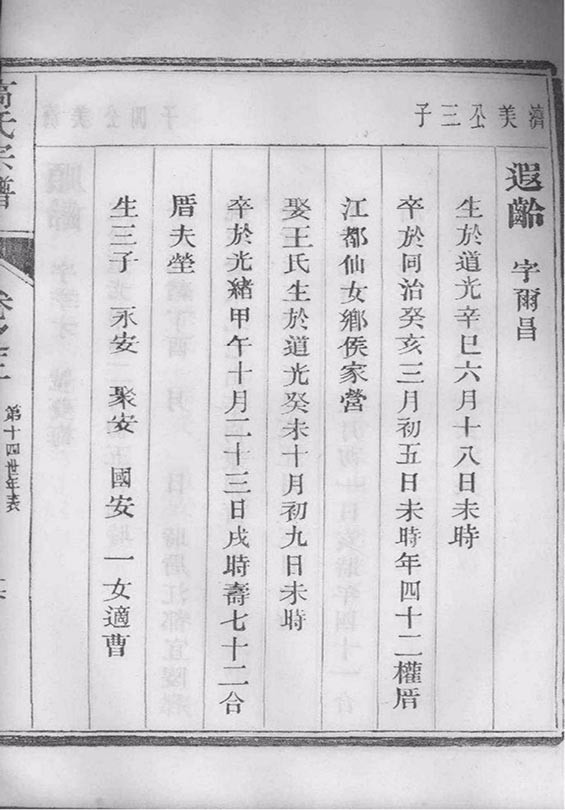 濟美公三子
遐齡 字爾昌
生於道光辛巳六月十八日未時
卒於同治癸亥三月初五日未時年四十二權厝
江都仙女鄉侯家營
娶王氏生於道光癸未十月初九日未時
卒於光緒甲午十月二十三日戌時壽七十二合
厝夫塋
生三子 永安 聚安 國安 一女適曹
高氏宗譜
第十四世年表